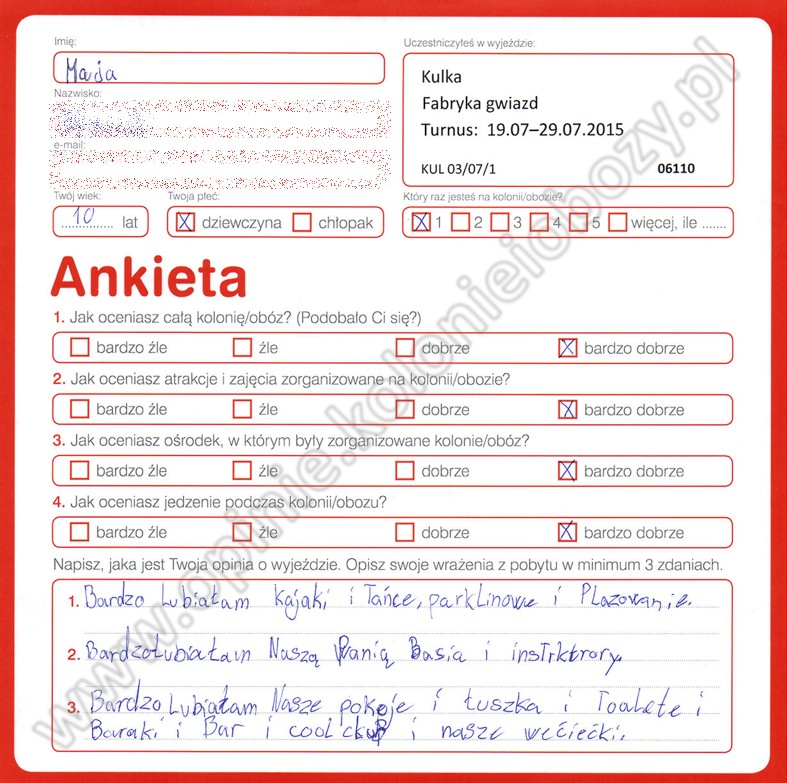 Imię:
Maja
Nazwisko:
e-mail:
Twój wiek:
10 lat
Twoja płeć:
X dziewczyna chłopak
Uczestniczyłeś w wyjeździe:
Kulka
Fabryka gwiazd
Turnus: 19.07–29.07.2015
KUL 03/07/1 06110
Który raz jesteś na kolonii/obozie?
X 1 2 3 4 5 więcej, ile .......
Ankieta
1. Jak oceniasz całą kolonię/obóz? (Podobało Ci się?)
bardzo źle źle dobrze X bardzo dobrze
2. Jak oceniasz atrakcje i zajęcia zorganizowane na kolonii/obozie?
bardzo źle źle dobrze X bardzo dobrze
3. Jak oceniasz ośrodek, w którym były zorganizowane kolonie/obóz?
bardzo źle źle dobrze X bardzo dobrze
4. Jak oceniasz jedzenie podczas kolonii/obozu?
bardzo źle źle dobrze X bardzo dobrze
Napisz, jaka jest Twoja opinia o wyjeździe. Opisz swoje wrażenia z pobytu w minimum 3 zdaniach.
1. Bardzo Lubiałam kajaki i Tańce, parklinowe i Plazowanie.
2. Bardzo Lubiałam Naszą Panią Basia i
3. Bardzo Lubiałam Nasze pokoje i łuszka i Toalete i
Baraki i Bar i cool i nasze wećiećki.
www.opinie.kolonieiobozy.pl